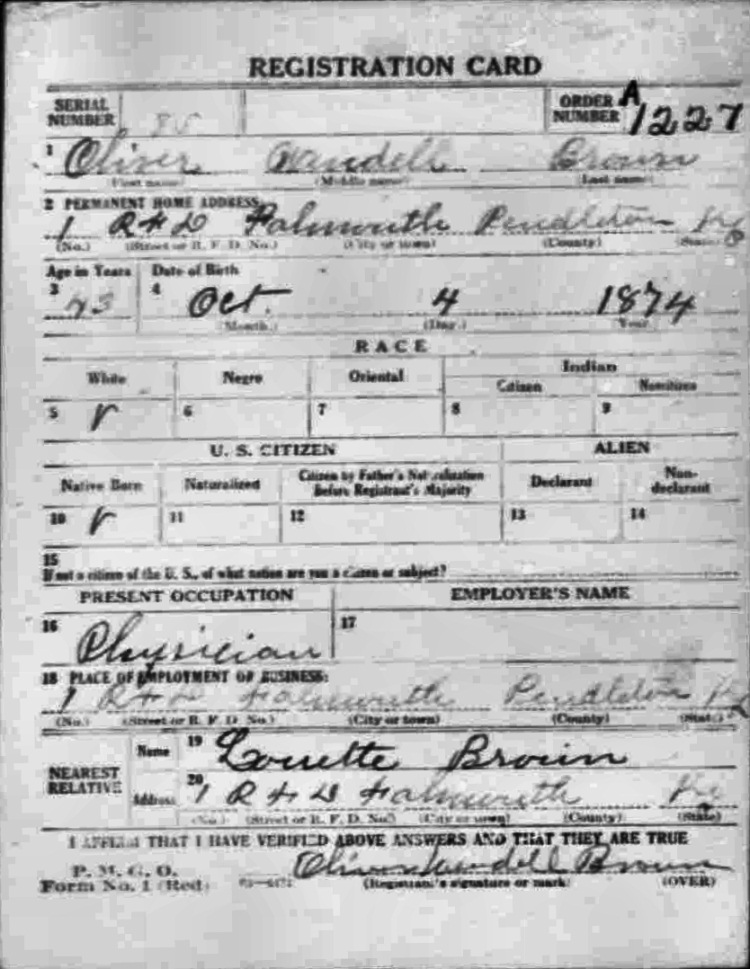 REGISTRATION CARD
SERIAL NUMBER 85 ORDER NUMBER A 1227
1 Oliver Wendell Brown
(First name) (Middle name) (Last name)
2 PERMANENT HOME ADDRESS:
1 R F D Falmouth Pendleton Ky
(No.) (Street or R. F. D. No.) (City or town) (County) (State)
Age in Years Date of Birth
3 43 4 Oct. 4 1874
(Month.) (Day.) (Year.)
RACE
White Negro Oriental Indian
Citizen Noncitizen
5 6 7 8 9
U. S. CITIZEN ALIEN
Native Born Naturalized Citizen by Father's Naturalization Before Registrant's Majority Declarant Non-declarant
10 11 12 13 14
15
If not a citizen of the U. S., of what nation are you a citizen or subject?
PRESENT OCCUPATION EMPLOYER'S NAME
16 Physician 17
18 PLACE OF EMPLOYMENT OR BUSINESS:
1 R F D Falmouth Pendleton Ky
(No.) (Street or R. F. D. No.) (City or town) (County) (State)
NEAREST RELATIVE
Name 19 Brown
Address 20 1 R F D Falmouth Ky
(No.) (Street or R. F. D. No.) (City or town) (County) (State)
I AFFIRM THAT I HAVE VERIFIED ABOVE ANSWERS AND THAT THEY ARE TRUE
P. M. G. O.
Form No. 1 (Red) Oliver Wendell Brown
(Registrant's signature or mark) (OVER)